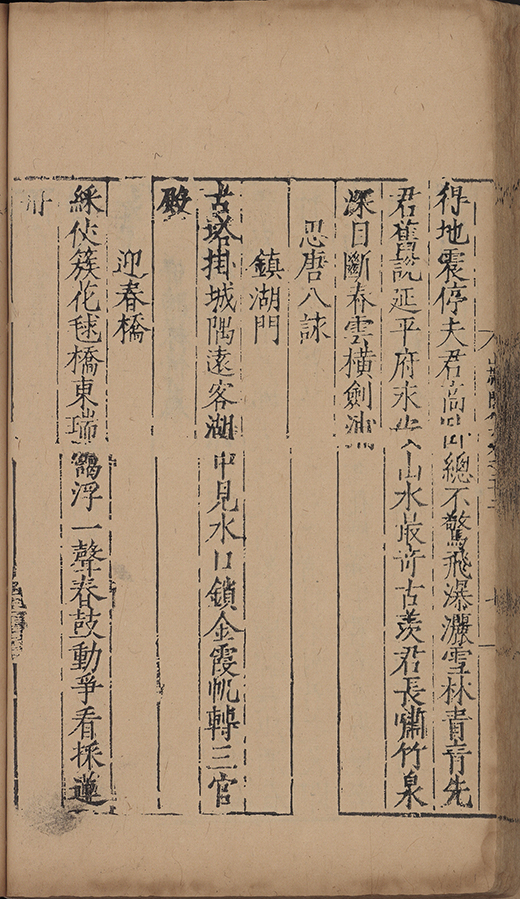 得地震停夫君高臥總不驚飛瀑灑雪林青青先
君舊說延平府水山水最奇古羨君長嘯竹泉
深目斷春雲橫劍浦
思唐八詠
鎮湖門
古塔掛城隅遠客湖中見水口鎖金霞帆轉三官
殿
迎春橋
綵伕簇花毬橋東瑞靄浮一聲春鼓動爭看採蓮
舟